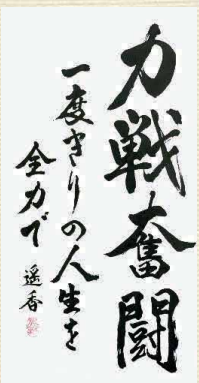 力戦奮闘
一度きりの人生を
全力で
遥香